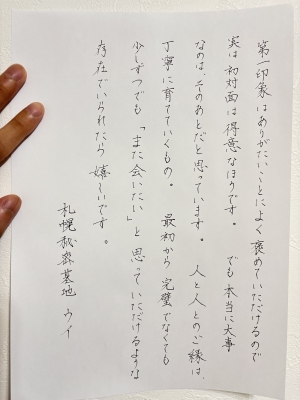 第一印象はありがたいことによく褒めていただけるので
実は初対面は得意なほうです。でも本当に大事
なのは、そのあとだと思っています。人と人とのご縁は、
丁寧に育てていくもの。最初から完璧でなくても
少しずつでも「また会いたい」と思っていただけるような
存在でいられたら嬉しいです。
札幌秘密基地 ウイ